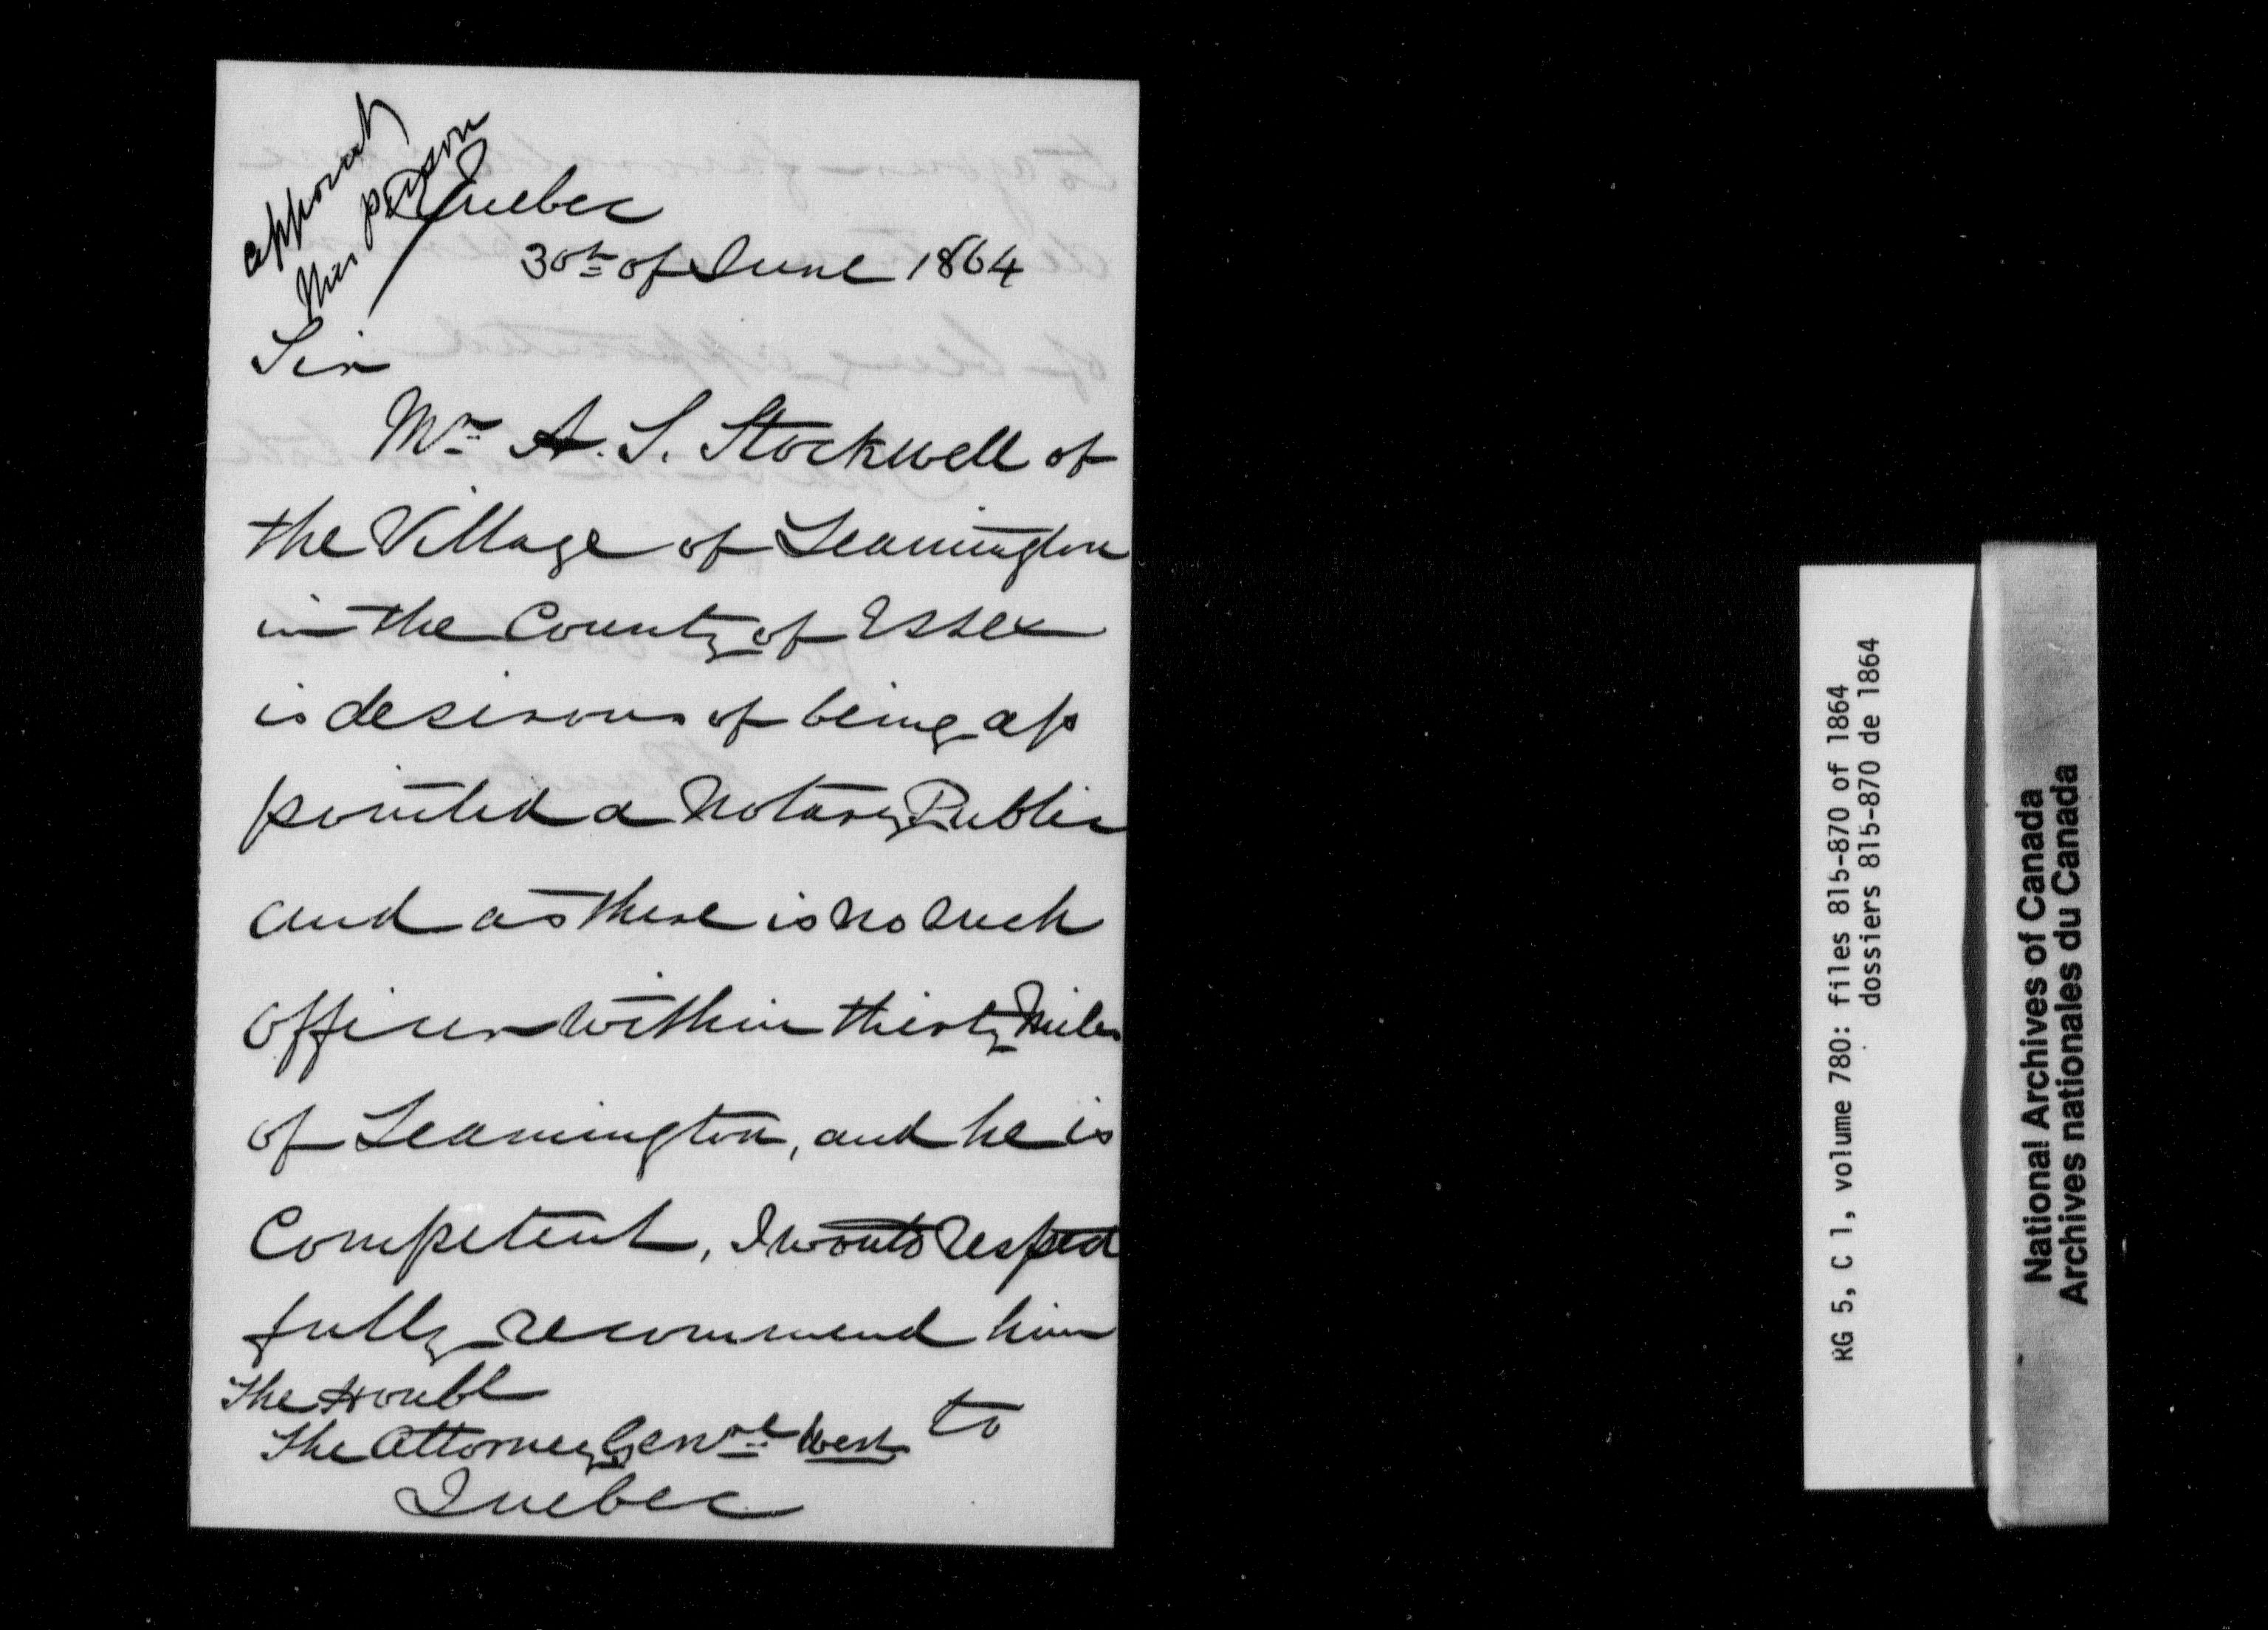 appoint
this person
Quebec
30th of June 1864
Sir
Mr A. S. Stockwell of
the Village of Leamington
in the County of Essex
is desirous of being ap
pointed a Notary Public
and as there is no such
officer within thirty Miles
of Leamington, and he is
Competent, I would respect
fully recommend him
to
The Honbl
The Attorney Genral West
Quebec
RG 5, C 1, volume 780: files 815-870 of 1864
dossiers 815-870 de 1864
National Archives of Canada
Archives nationales du Canada